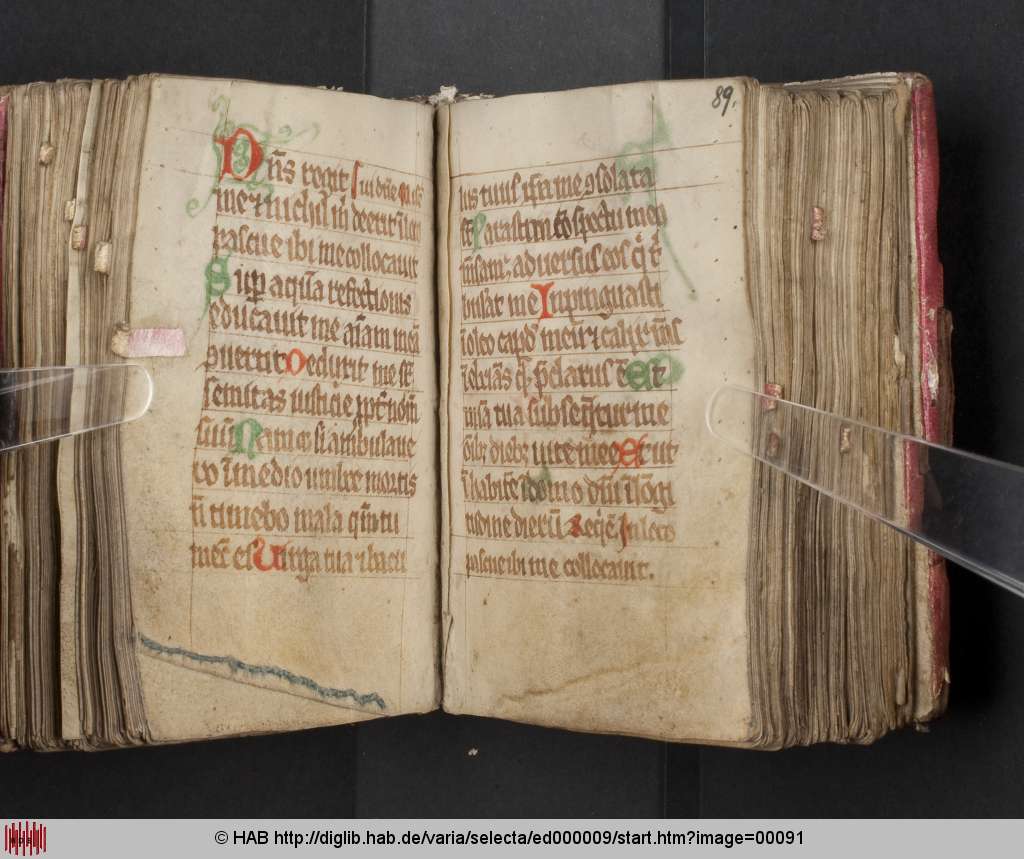 Dn̄s regit
me ⁊ nichil m̄ deerit
pascue ibi me collocauit
Sup aquā refectionis
educauit me aīam meā
9uertit Deduxit me
semitas iusticie ꝓpt̄ nom̄
suū Nam ⁊ si ambulaue
ro ī medio umbre mortis
ñ timebo mala qm̄ tu
mec̄ es Uirga tua ⁊ bacu
89.
lus tuus ip̄a me 9solata
st̄ Parasti in 9spectu meo
mēsam aduersus eos q̄ t̄
bulāt me Inpinguasti
ī oleo capd̄ meū ⁊ calix m̄s
īebriās q̄ p̄clarus ē Et
mīa tua subseq̄tur me
oīb; dieb; uite mee Et ut
īhabitē ī domo dn̄i ī lōgi
tudine dierū Reqīē In loco
pascue ibi me collocauit.
© HAB http://diglib.hab.de/varia/selecta/ed000009/start.htm?image=00091